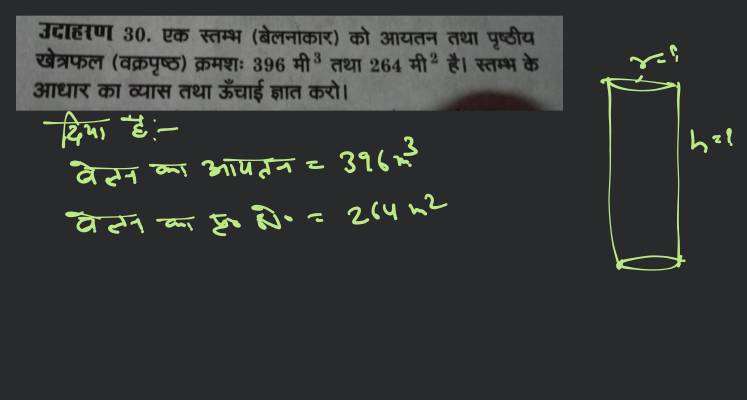 उदाहरण 30. एक स्तम्भ (बेलनाकार) को आयतन तथा पृष्ठीय
खेत्रफल (वक्रपृष्ठ) क्रमशः 396 मी³ तथा 264 मी² है। स्तम्भ के
आधार का व्यास तथा ऊँचाई ज्ञात करो।
दिया है:-
बेलन का आयतन = 396 m³
बेलन का पृ० क्षे० = 264 m²
r=?
h=?